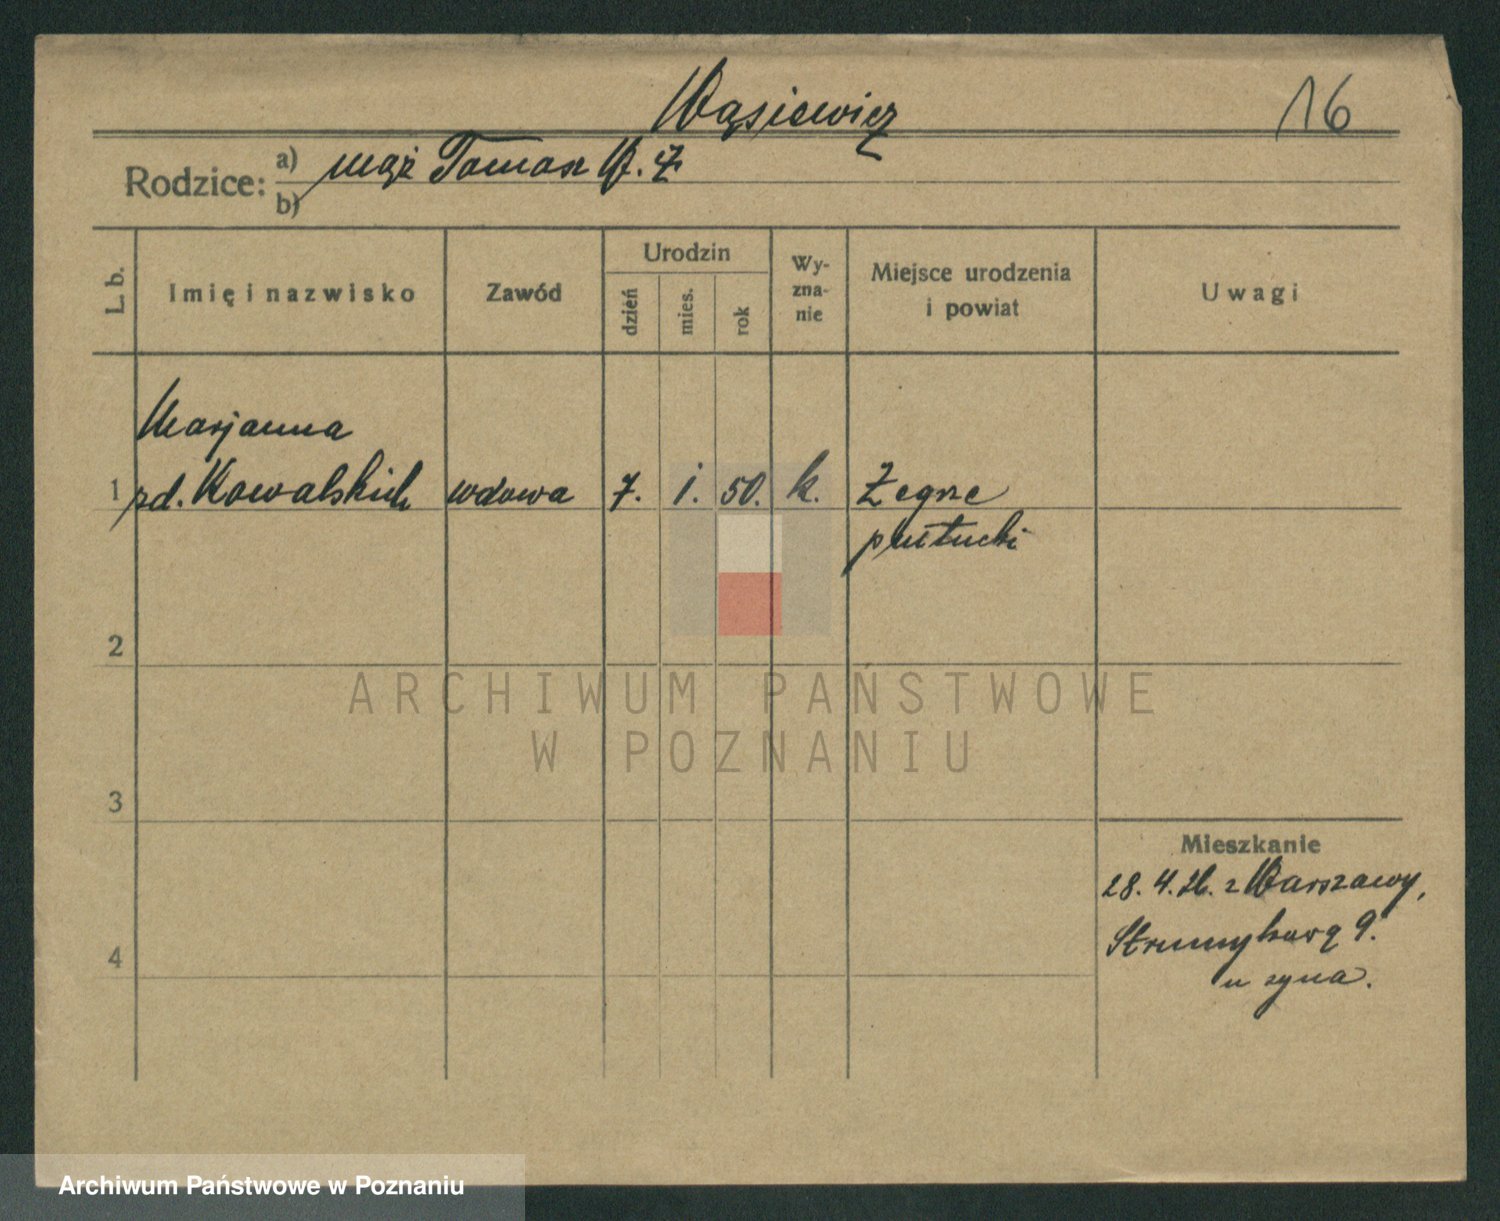 Wąsiewicz
16
Rodzice: a) mąż Tomasz W. Ż
b)
L. b.
Imię i nazwisko
Zawód
Urodzin
dzień
mies.
rok
Wy-
zna-
nie
Miejsce urodzenia
i powiat
Uwagi
Marjanna
1 zd. Kowalskich wdowa 7. 1. 50. k. Zegrze
pułtucki
2
3
4
Mieszkanie
28. 4. 26. z Warszawy,
9.
u syna.
ARCHIWUM PAŃSTWOWE
W POZNANIU
Archiwum Państwowe w Poznaniu